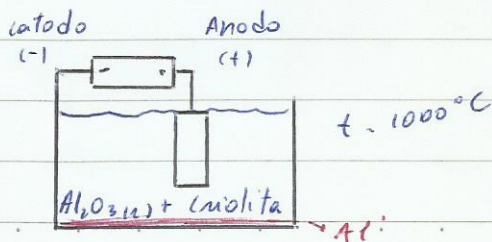 Catodo Anodo
(-) (+)
- +
t = 1000°C
Al₂O₃(l) + Criolita
Al